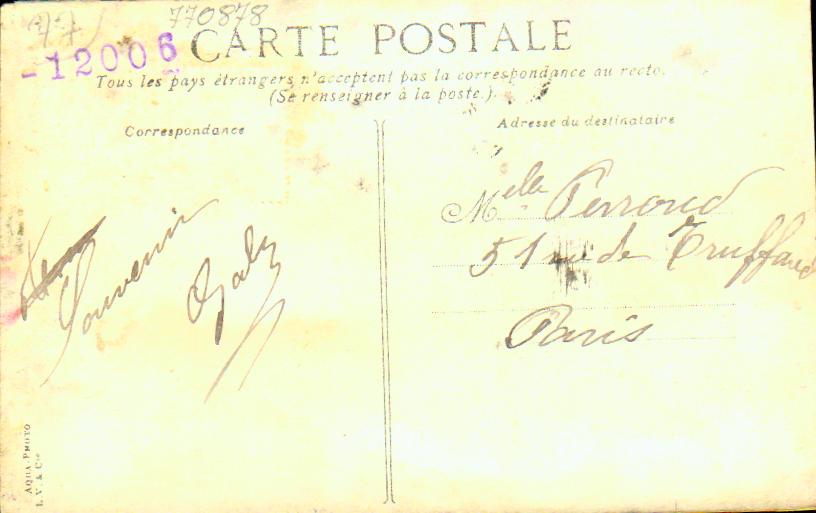 77
770878
-12006
CARTE POSTALE
Tous les pays étrangers n'acceptent pas la correspondance au recto.
(Se renseigner à la poste.)
Correspondance
Souvenir
Gaby
AQUA-PHOTO
L. V. & Cie
Adresse du destinataire
Melle Perroud
51 rue de Truffaud
Paris